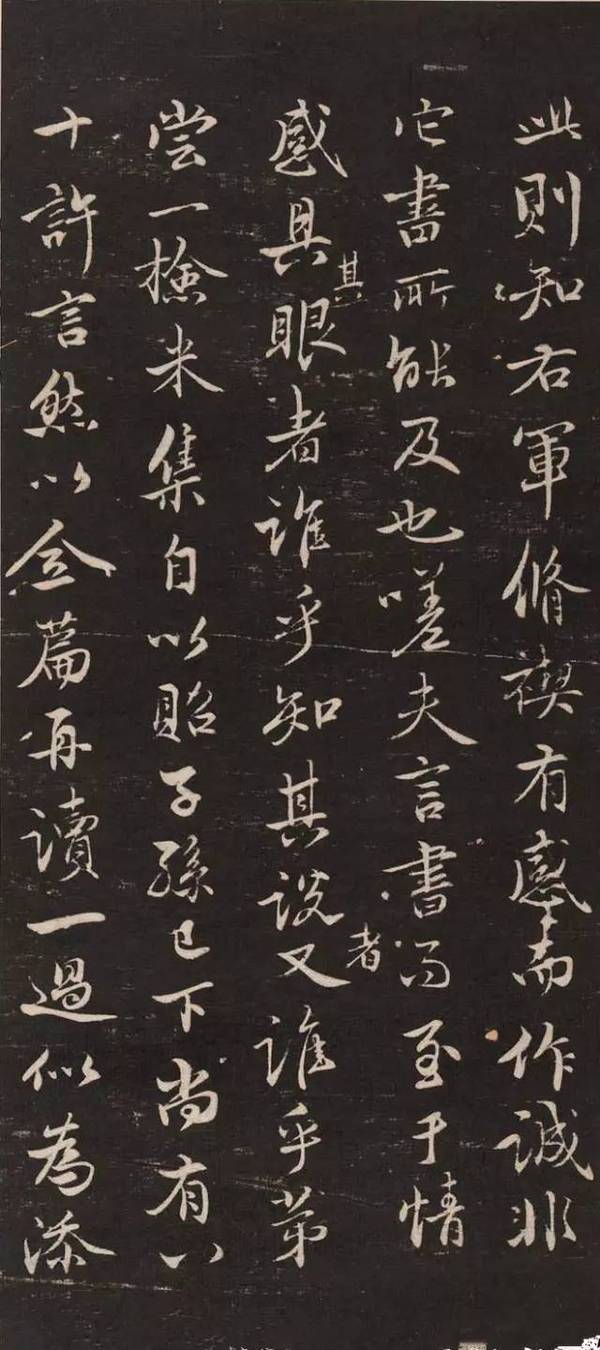 此則知右軍脩禊有感而作誠非
它書所能及也嗟夫言書至于情
感具其眼者誰乎知其説者又誰乎苐
嘗一撿米集自以貽子孫已下尚有八
十許言然以全篇再讀一過似為添